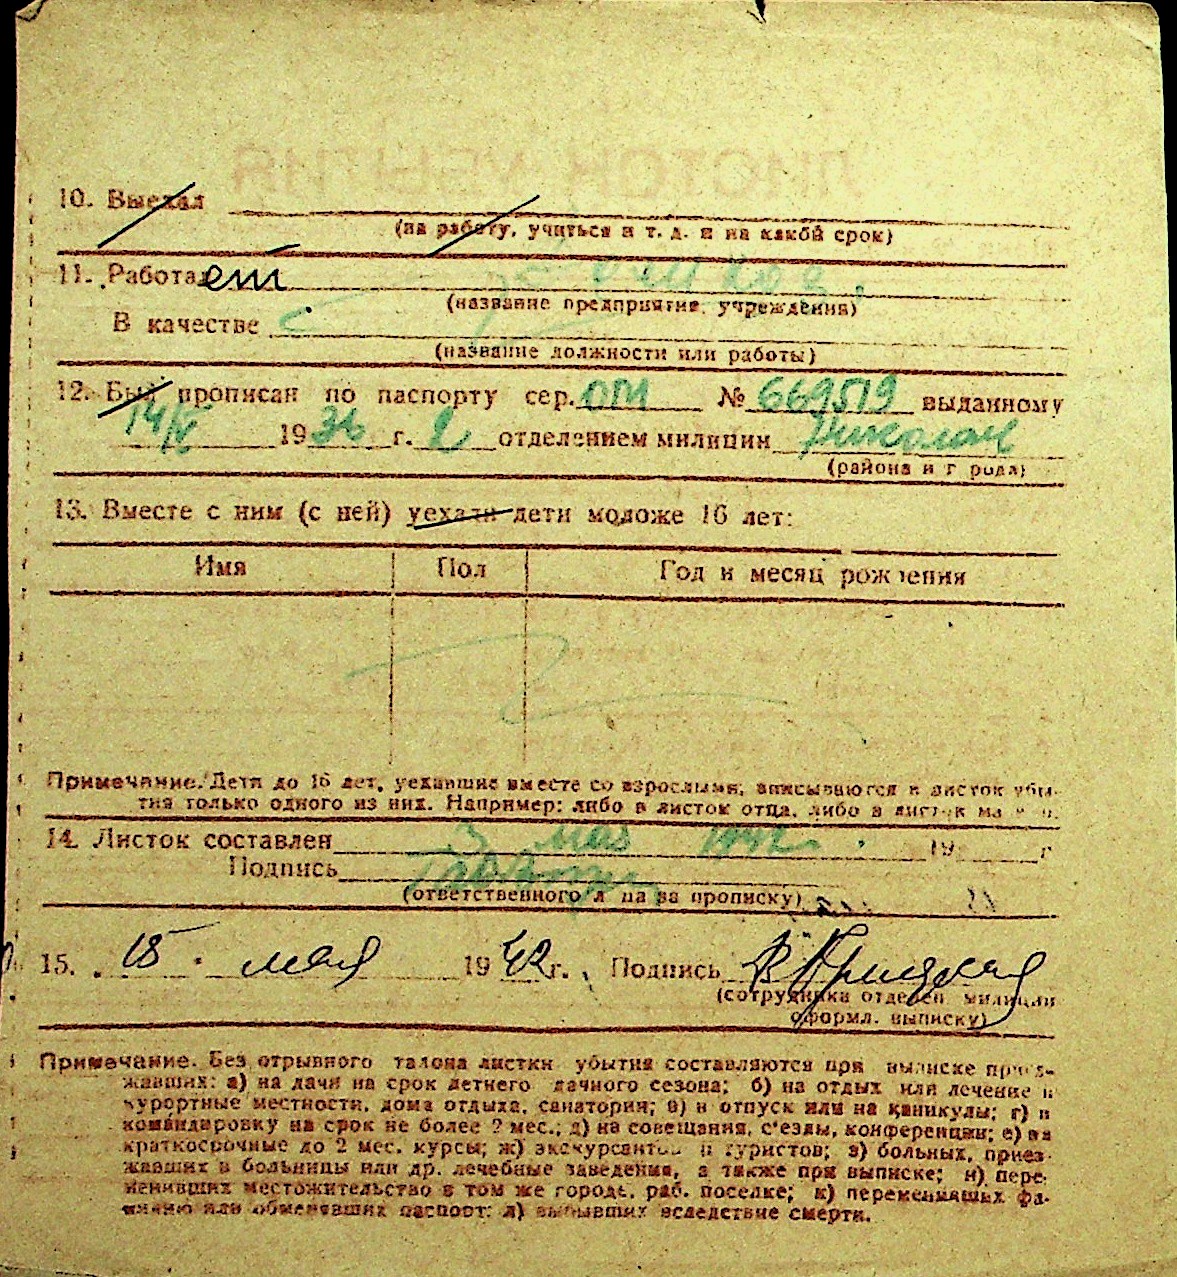 ЛИСТОК УБЫТИЯ
10. Выехал
(на работу, учиться и т. д. и на какой срок)
11. Работает
(название предприятия, учреждения)
В качестве
(название должности или работы)
12. Был прописан по паспорту сер. ОГИ № 669519 выданному
14/V 1936 г. 2 отделением милиции Николаев
(района и города)
13. Вместе с ним (с ней) уехали дети моложе 16 лет:
Имя Пол Год и месяц рождения
Примечание. Дети до 16 лет, уехавшие вместе со взрослыми, вписываются в листок убы-
тия только одного из них. Например: либо в листок отца, либо в листок
14. Листок составлен 3 мая 1942 19 г
Подпись
(ответственного лица за прописку)
15. 15. мая 1942 г. Подпись
(сотрудника отделен милиции
оформл. выписку)
Примечание. Без отрывного талона листки убытия составляются при выписке приез-
жавших: а) на дачи на срок летнего дачного сезона; б) на отдых или лечение в
курортные местности, дома отдыха, санатории; в) в отпуск или на каникулы; г) в
командировку на срок не более 2 мес.; д) на совещания, с'езды, конференции; е) на
краткосрочные до 2 мес. курсы; ж) экскурсантов и туристов; з) больных, приез-
жавших в больницы или др. лечебные заведения, а также при выписке; и) пере-
менивших местожительство в том же городе, раб. поселке; к) переменивших фа-
милию или обменявших паспорт; л) выбывших вследствие смерти.